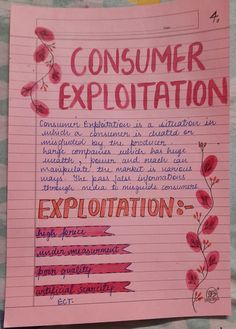 4,
CONSUMER
EXPLOITATION
Consumer Exploitation is a situation in
which a consumer is cheated or
misguided by the producer.
Large companies which has huge
wealth, power and reach can
manipulate the market in various
ways. The pass fales informations
through media to misguide consumers
EXPLOITATION:-
high price
under measurment
poor quality
artificial scarcity
ECT.